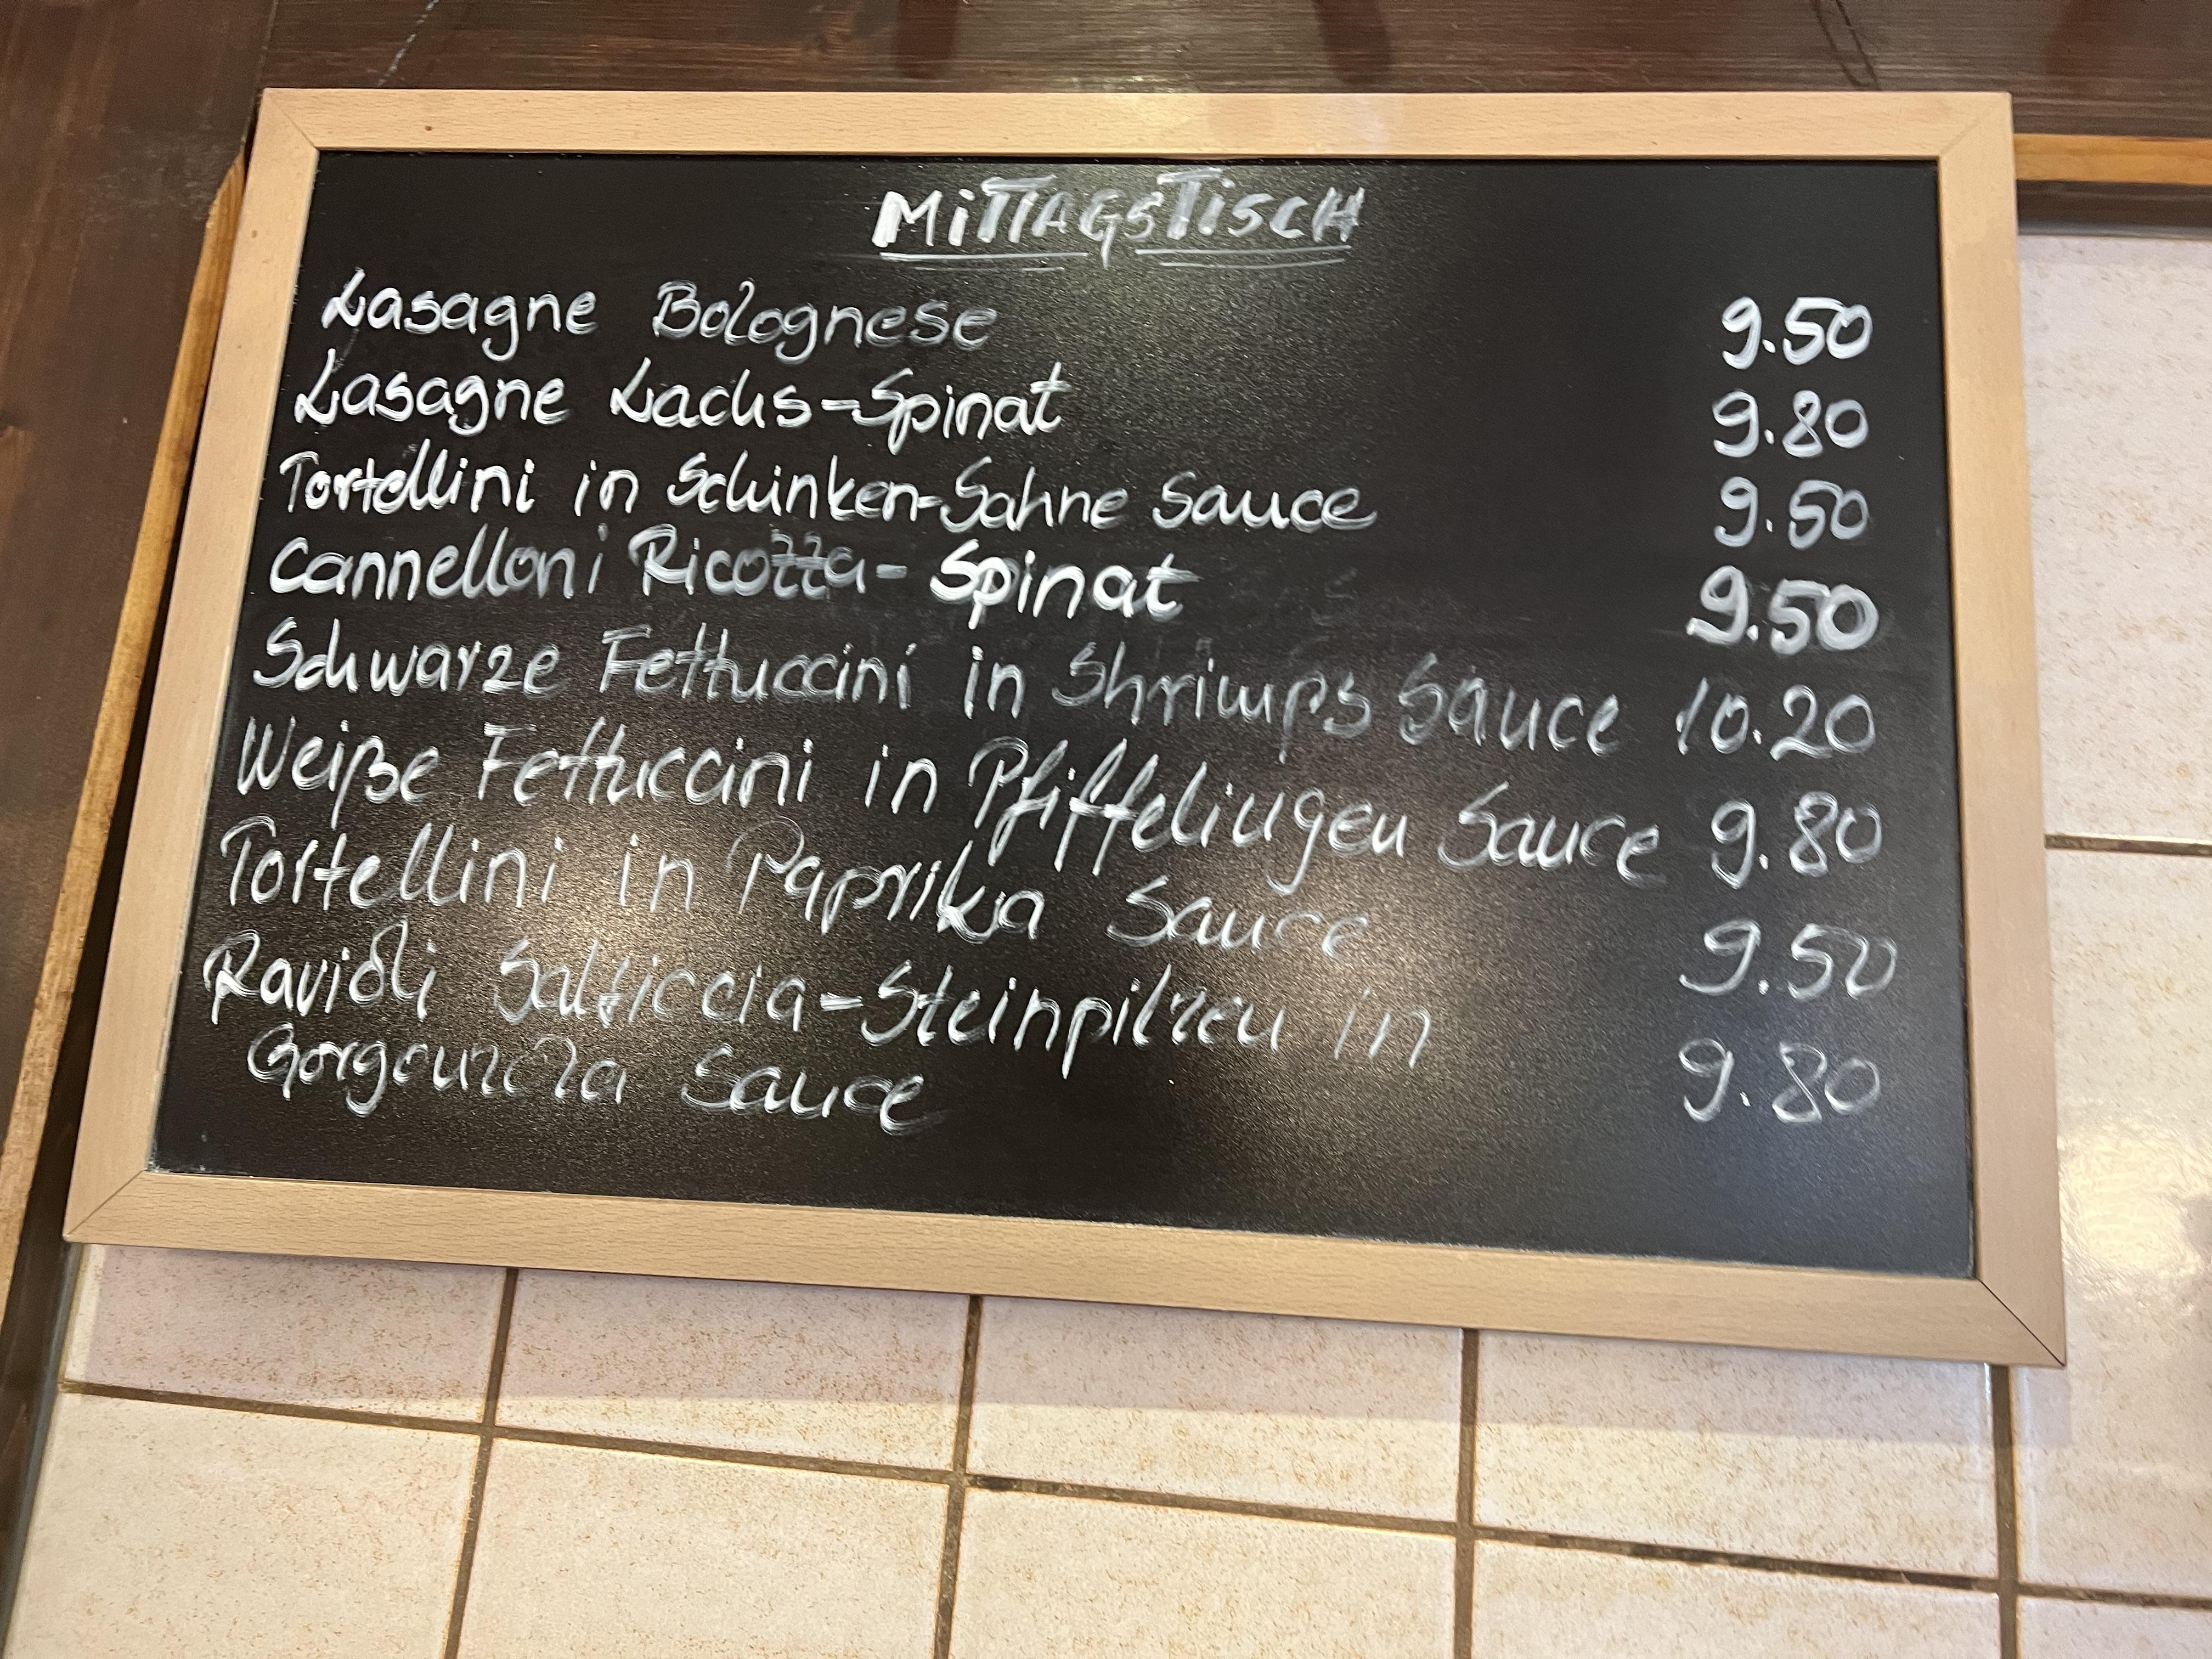 MiTTAGSTiSCH
Lasagne Bolognese 9.50
Lasagne Lachs-Spinat 9.80
Tortellini in Schinken-Sahne Sauce 9.50
Cannelloni Ricotta-Spinat 9.50
Schwarze Fettuccini in Shrimps Sauce 10.20
Weiße Fettuccini in Pfifferlingen Sauce 9.80
Tortellini in Paprika Sauce 9.50
Ravioli Salsiccia-Steinpilzen in
Gorgonzola Sauce 9.80